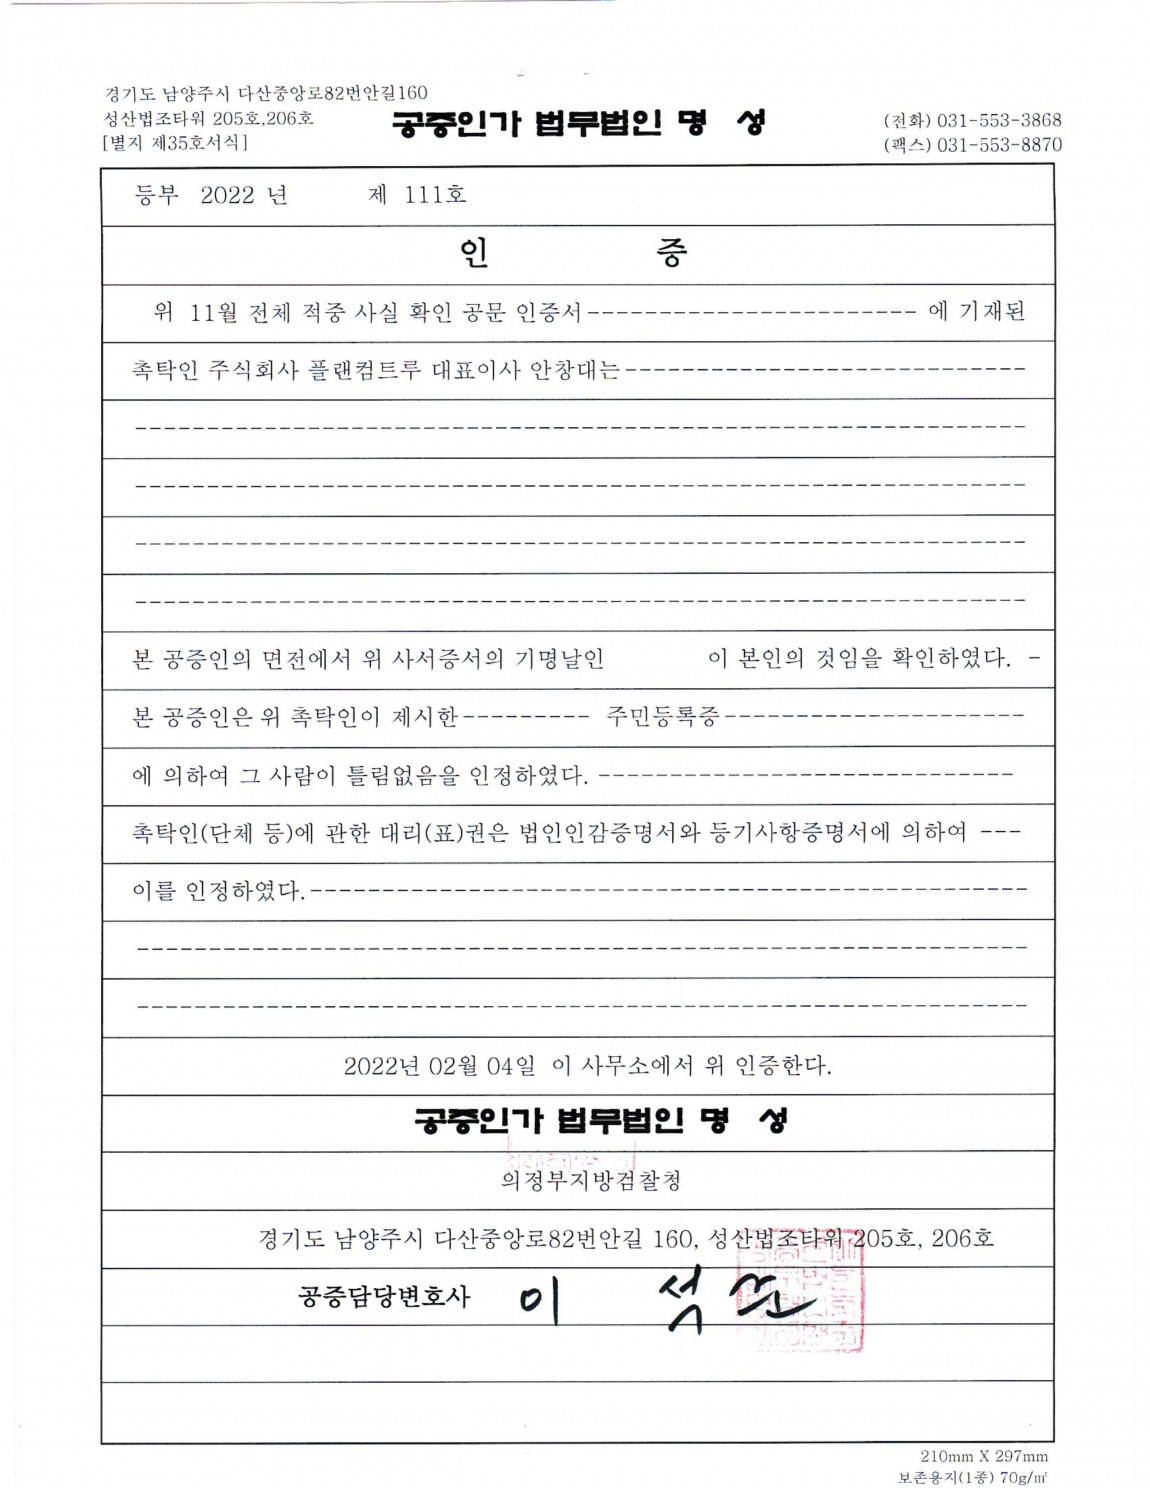 경기도 남양주시 다산중앙로82번안길160
성산법조타워 205호,206호
[별지 제35호서식]
공증인가 법무법인 명 성
(전화) 031-553-3868
(팩스) 031-553-8870
등부 2022 년 제 111호
인 증
위 11월 전체 적중 사실 확인 공문 인증서----------------------- 에 기재된
촉탁인 주식회사 플랜컴트루 대표이사 안창대는----------------------------
본 공증인의 면전에서 위 사서증서의 기명날인 이 본인의 것임을 확인하였다. -
본 공증인은 위 촉탁인이 제시한--------- 주민등록증---------------------
에 의하여 그 사람이 틀림없음을 인정하였다. -----------------------------
촉탁인(단체 등)에 관한 대리(표)권은 법인인감증명서와 등기사항증명서에 의하여 ---
이를 인정하였다.--------------------------------------------------
2022년 02월 04일 이 사무소에서 위 인증한다.
공증인가 법무법인 명 성
의정부지방검찰청
경기도 남양주시 다산중앙로82번안길 160, 성산법조타워 205호, 206호
공증담당변호사 이 석
210mm X 297mm
보존용지(1종) 70g/㎡